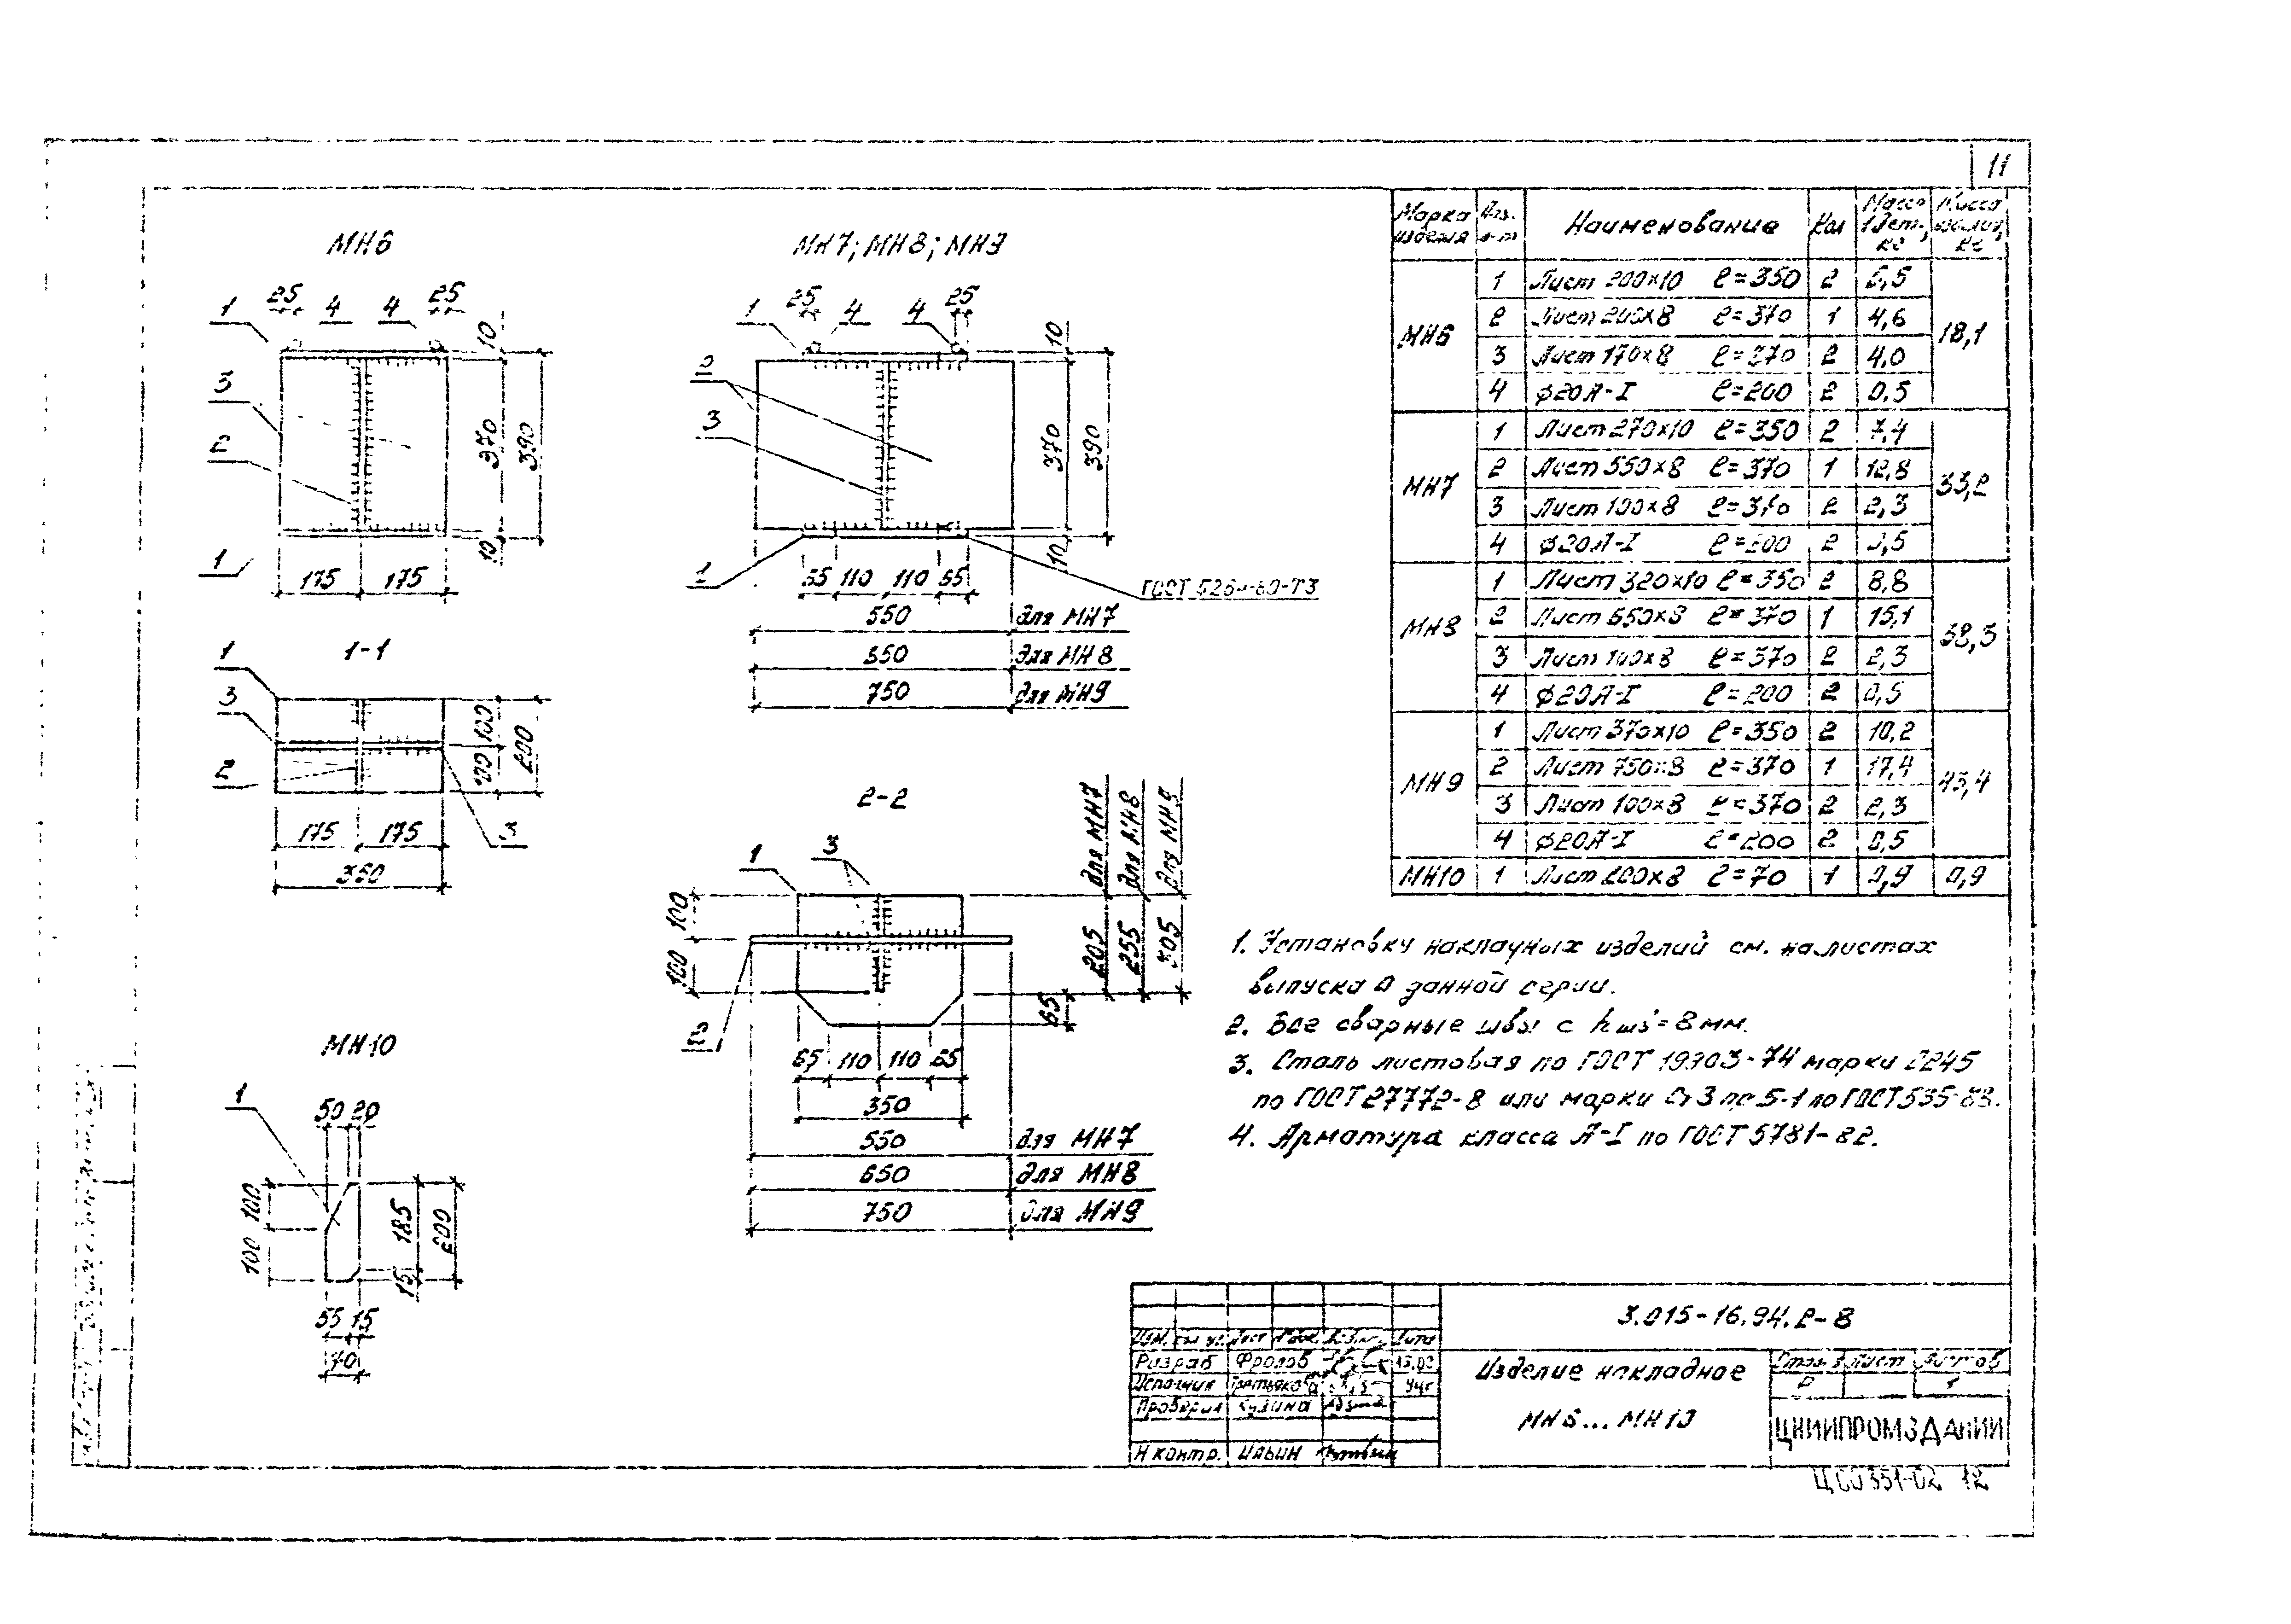 11
МН6
1 25 4 4 25
3
2
1
10
370
390
10
175 175
1-1
1
3
2
100
100
200
175 175
3
350
МН10
1
50 20
100
100
185
15
200
55 15
70
МН7; МН8; МН9
1 25 4 4 25
2
3
1
10
370
390
10
65 110 110 65
550 для МН7
650 для МН8
750 для МН9
2-2
1 3
2
100
100
205 для МН7
255 для МН8
305 для МН9
65
65 110 110 65
350
550 для МН7
650 для МН8
750 для МН9
Марка изделия Поз. Наименование Кол Масса 1 дет., кг Масса изделия, кг
МН6 1 Лист 200×10 ℓ=350 2 5,5 18,1
2 Лист 200×8 ℓ=370 1 4,6
3 Лист 170×8 ℓ=370 2 4,0
4 ф20А-I ℓ=200 2 0,5
МН7 1 Лист 270×10 ℓ=350 2 7,4 33,2
2 Лист 550×8 ℓ=370 1 12,8
3 Лист 100×8 ℓ=370 2 2,3
4 ф20А-I ℓ=200 2 0,5
МН8 1 Лист 320×10 ℓ=350 2 8,8 38,3
2 Лист 650×8 ℓ=370 1 15,1
3 Лист 100×8 ℓ=370 2 2,3
4 ф20А-I ℓ=200 2 0,5
МН9 1 Лист 370×10 ℓ=350 2 10,2 43,4
2 Лист 750×8 ℓ=370 1 17,4
3 Лист 100×8 ℓ=370 2 2,3
4 ф20А-I ℓ=200 2 0,5
МН10 1 Лист 200×8 ℓ=70 1 0,9 0,9
1. Установку накладных изделий см. на листах
выпуска 0 данной серии.
2. Все сварные швы с hш = 8 мм.
3. Сталь листовая по ГОСТ 19903-74 марки С245
по ГОСТ 27772-8 или марки Ст3пс5-1 по ГОСТ 535-88.
4. Арматура класса А-I по ГОСТ 5781-82.
3.015-16.94.2-8
Изм. Кол. уч. Лист № док. Дата
Разраб Фролов
Исполнил Третьякова
Проверил Кузина
Н контр. Ильин
Изделие накладное
МН6...МН10
Стадия Лист Листов
Р 1
ЦНИИПРОМЗДАНИЙ
Ц00351-02 12